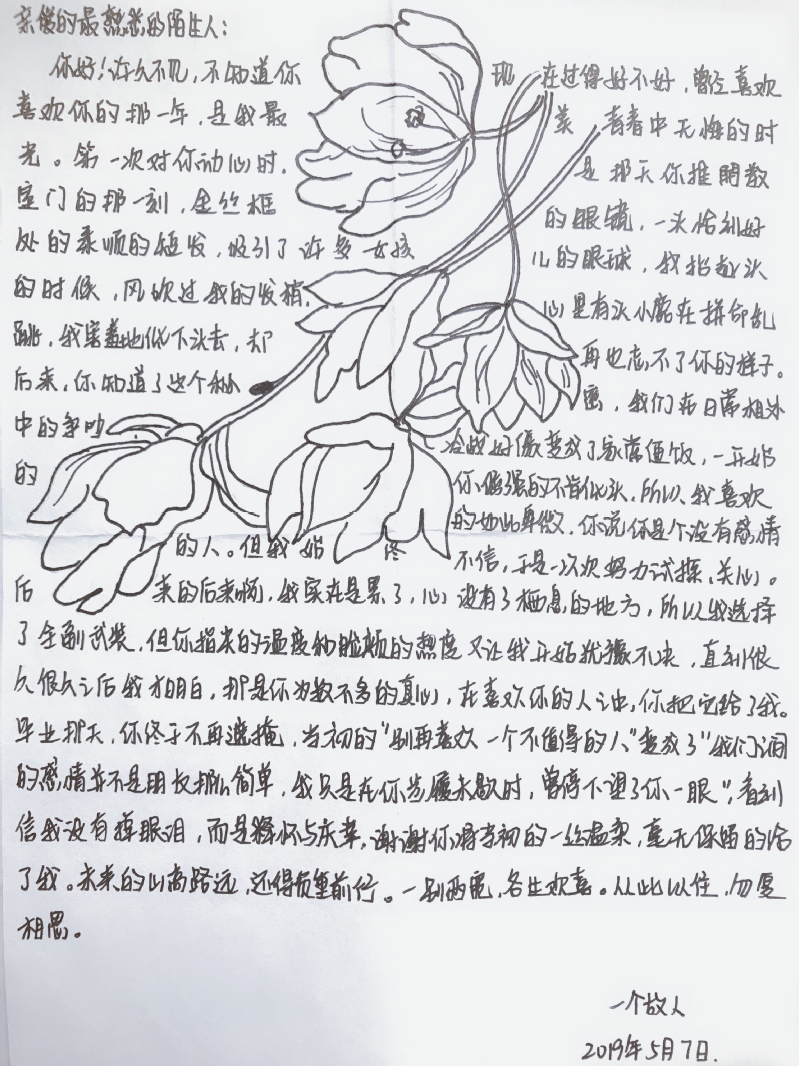 亲爱的最熟悉的陌生人:
你好!许久不见,不知道你现在过得好不好,曾经喜欢
喜欢你的那一年,是我最美青春中无悔的时
光。第一次对你动心时,是那天你推開教
室门的那一刻,金丝框的眼镜,一头恰到好
处的柔顺的短发,吸引了许多女孩儿的眼球,我抬起头
的时候,风吹过我的发梢,心里有头小鹿在拼命乱
跳,我害羞地低下头去,却再也忘不了你的样子。
后来,你知道了这个秘密,我们在日常相处
中的争吵冷战好像变成了家常便饭,一开始
的你倔强的不肯低头,所以,我喜欢
的如此卑微,你说你是个没有感情
的人。但我始终不信,于是一次次努力试探、关心。
后来的后来啊,我实在是累了,心没有了栖息的地方,所以我选择
了全副武装,但你指尖的温度和脸颊的热度又让我开始犹豫不决,直到很
久很久之后我才明白,那是你为数不多的真心,在喜欢你的人之中,你把它给了我。
毕业那天,你终于不再遮掩,当初的“别再喜欢一个不值得的人”变成了“我们之间
的感情并不是朋友那么简单,我只是在你步履未歇时,曾停下望了你一眼”,看到
信我没有掉眼泪,而是释怀与庆幸,谢谢你将当初的一丝温柔,毫无保留的给
了我。未来的山高路远,还得负重前行。一别两宽,各生欢喜。从此以往,勿复
相思。
一个故人
2019年5月7日.